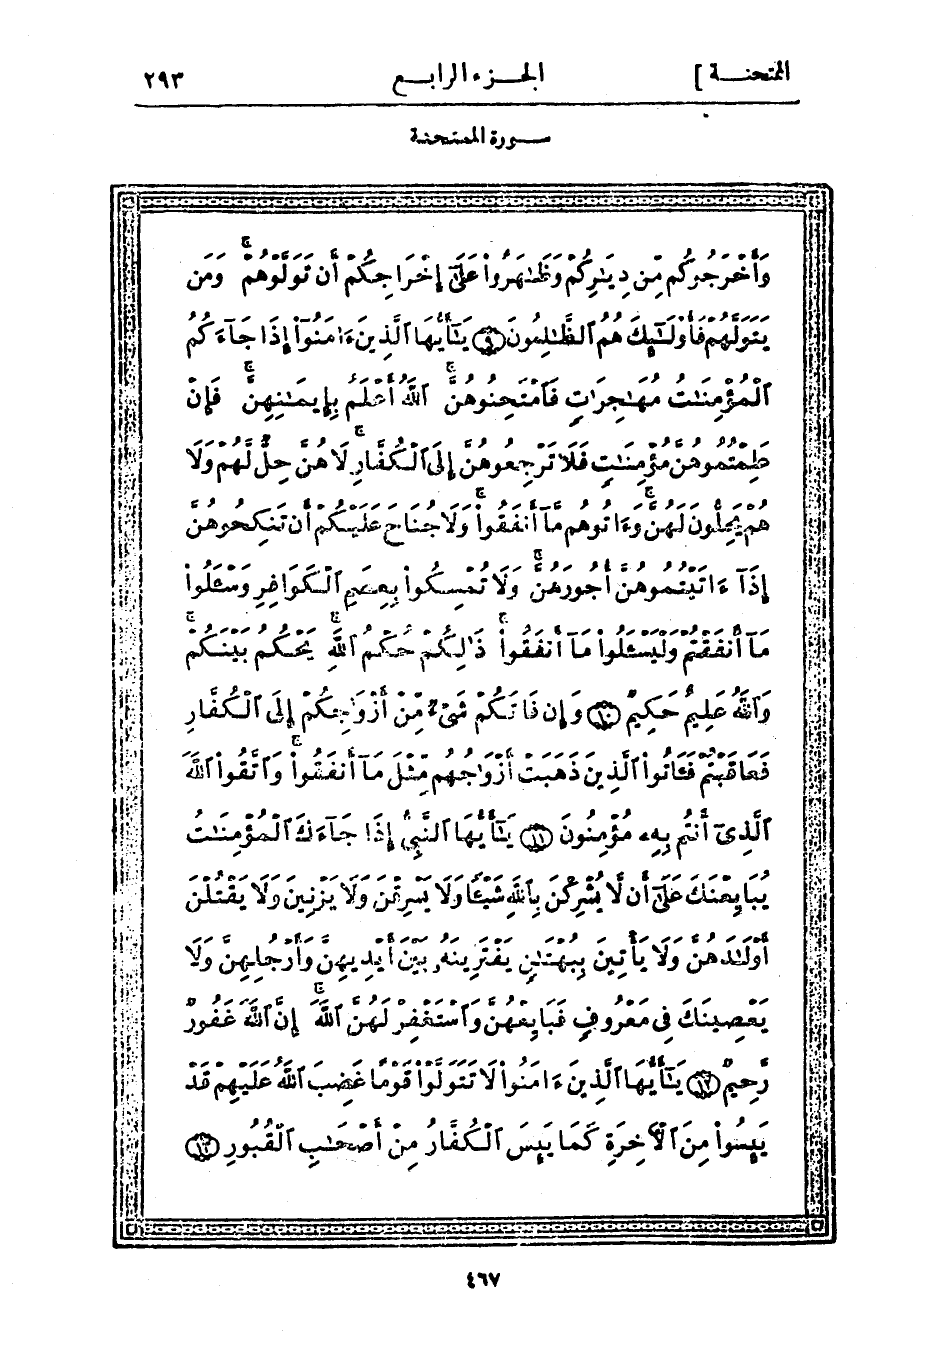 الممتحنة ] الجزء الرابع ٢٩٣
سورة الممتحنة
وَأَخْرَجُوكُم مِّن دِيَٰرِكُمْ وَظَٰهَرُوا۟ عَلَىٰٓ إِخْرَاجِكُمْ أَن تَوَلَّوْهُمْ ۚ وَمَن
يَتَوَلَّهُمْ فَأُو۟لَٰٓئِكَ هُمُ ٱلظَّٰلِمُونَ ٩ يَٰٓأَيُّهَا ٱلَّذِينَ ءَامَنُوٓا۟ إِذَا جَآءَكُمُ
ٱلْمُؤْمِنَٰتُ مُهَٰجِرَٰتٍ فَٱمْتَحِنُوهُنَّ ۖ ٱللَّهُ أَعْلَمُ بِإِيمَٰنِهِنَّ ۖ فَإِنْ
عَلِمْتُمُوهُنَّ مُؤْمِنَٰتٍ فَلَا تَرْجِعُوهُنَّ إِلَى ٱلْكُفَّارِ ۖ لَا هُنَّ حِلٌّ لَّهُمْ وَلَا
هُمْ يَحِلُّونَ لَهُنَّ ۖ وَءَاتُوهُم مَّآ أَنفَقُوا۟ ۚ وَلَا جُنَاحَ عَلَيْكُمْ أَن تَنكِحُوهُنَّ
إِذَآ ءَاتَيْتُمُوهُنَّ أُجُورَهُنَّ ۚ وَلَا تُمْسِكُوا۟ بِعِصَمِ ٱلْكَوَافِرِ وَسْـَٔلُوا۟
مَآ أَنفَقْتُمْ وَلْيَسْـَٔلُوا۟ مَآ أَنفَقُوا۟ ۚ ذَٰلِكُمْ حُكْمُ ٱللَّهِ ۖ يَحْكُمُ بَيْنَكُمْ ۚ
وَٱللَّهُ عَلِيمٌ حَكِيمٌ ١٠ وَإِن فَاتَكُمْ شَىْءٌ مِّنْ أَزْوَٰجِكُمْ إِلَى ٱلْكُفَّارِ
فَعَاقَبْتُمْ فَـَٔاتُوا۟ ٱلَّذِينَ ذَهَبَتْ أَزْوَٰجُهُم مِّثْلَ مَآ أَنفَقُوا۟ ۚ وَٱتَّقُوا۟ ٱللَّهَ
ٱلَّذِىٓ أَنتُم بِهِۦ مُؤْمِنُونَ ١١ يَٰٓأَيُّهَا ٱلنَّبِىُّ إِذَا جَآءَكَ ٱلْمُؤْمِنَٰتُ
يُبَايِعْنَكَ عَلَىٰٓ أَن لَّا يُشْرِكْنَ بِٱللَّهِ شَيْـًٔا وَلَا يَسْرِقْنَ وَلَا يَزْنِينَ وَلَا يَقْتُلْنَ
أَوْلَٰدَهُنَّ وَلَا يَأْتِينَ بِبُهْتَٰنٍ يَفْتَرِينَهُۥ بَيْنَ أَيْدِيهِنَّ وَأَرْجُلِهِنَّ وَلَا
يَعْصِينَكَ فِى مَعْرُوفٍ فَبَايِعْهُنَّ وَٱسْتَغْفِرْ لَهُنَّ ٱللَّهَ ۖ إِنَّ ٱللَّهَ غَفُورٌ
رَّحِيمٌ ١٢ يَٰٓأَيُّهَا ٱلَّذِينَ ءَامَنُوا۟ لَا تَتَوَلَّوْا۟ قَوْمًا غَضِبَ ٱللَّهُ عَلَيْهِمْ قَدْ
يَئِسُوا۟ مِنَ ٱلْـَٔاخِرَةِ كَمَا يَئِسَ ٱلْكُفَّارُ مِنْ أَصْحَٰبِ ٱلْقُبُورِ ١٣
٤٦٧